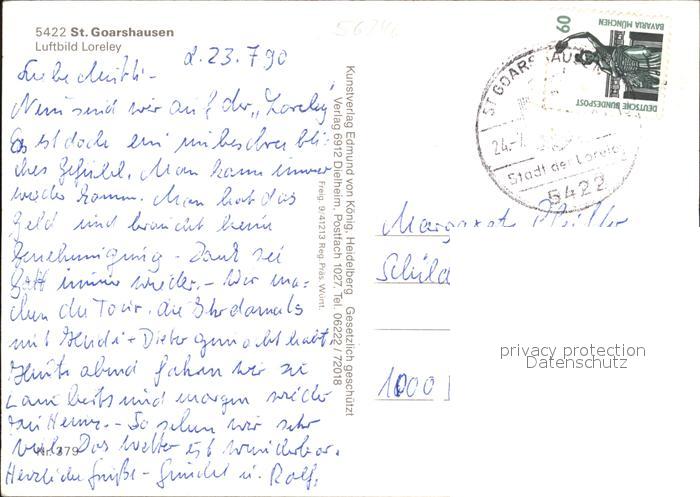 5422 St. Goarshausen
Luftbild Loreley
d. 23.7.90
Liebe Mutti -
Nun sind wir auf der „Loreley"
Es ist doch ein unbeschreibli-
ches Gefühl. Man kann immer
wieder komm. Man hat das
Geld und braucht keine
Genehmigung - Dank sei
Gott immer wieder. - Wir ma-
chen die Tour, die Ihr damals
mit Heidi + Dieter gemacht habt.
Heute abend fahren wir zu
und morgen wieder
- So sehen wir sehr
viel. Das Wetter ist wunderbar.
Herzliche Grüße - Gundel u. Rolf.
Nr. 379
Kunstverlag Edmund von König, Heidelberg Gesetzlich geschützt
Verlag 6912 Dielheim, Postfach 1027, Tel. 06222/72018
Freig. 9/41213 Reg. Präs. Württ.
60
BAVARIA MÜNCHEN
DEUTSCHE BUNDESPOST
ST GOARSHAUSEN
24.-7.
Stadt der Loreley
5422
Margarete
Schild
1000
privacy protection
Datenschutz